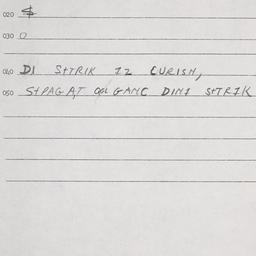 020 $
030 0
040 DI STTRIK IZ CURISH,
050 STPAGAT OOL GANC DINI STTRIK